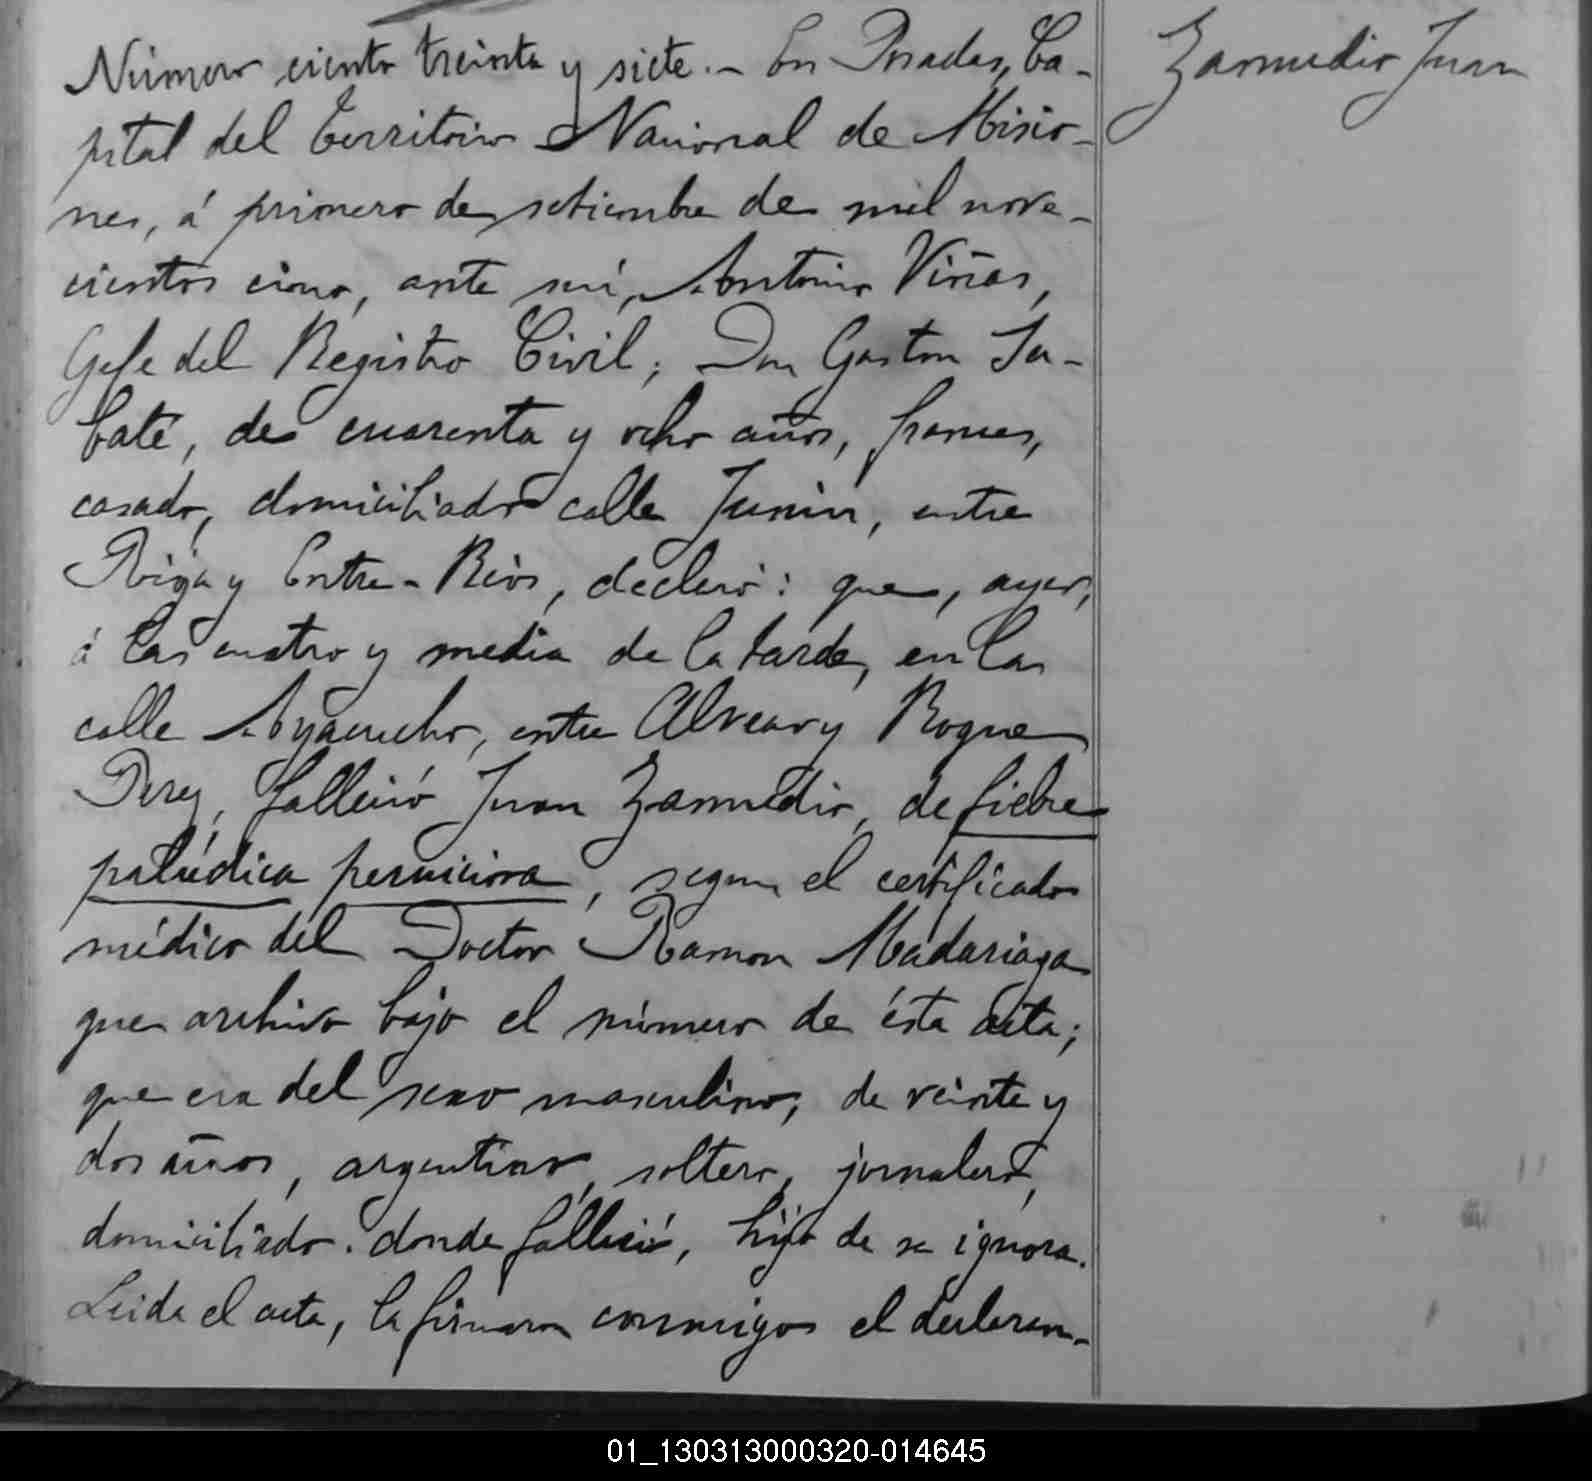 Número ciento treinta y siete.- En Posadas, Ca-
Zamudio Juan
pital del Territorio Nacional de Misio-
nes, á primero de setiembre de mil nove-
cientos cinco, ante mí, Antonio Viñas,
Gefe del Registro Civil; Don Gaston Sa-
baté, de cuarenta y ocho años, frances,
casado, domiciliado calle Junin, entre
Rioja y Entre-Rios, declaró: que, ayer,
á las cuatro y media de la tarde, en la
calle Ayacucho, entre Alvear y Roque
Perez, falleció Juan Zamudio, de fiebre
palúdica perniciosa, segun el certificado
médico del Doctor Ramon Madariaga
que archivo bajo el número de ésta acta;
que era del sexo masculino, de veinte y
dos años, argentino, soltero, jornalero,
domiciliado donde falleció, hijo de se ignora.
Leida el acta, la firmaron conmigo el declaran-
01_130313000320-014645